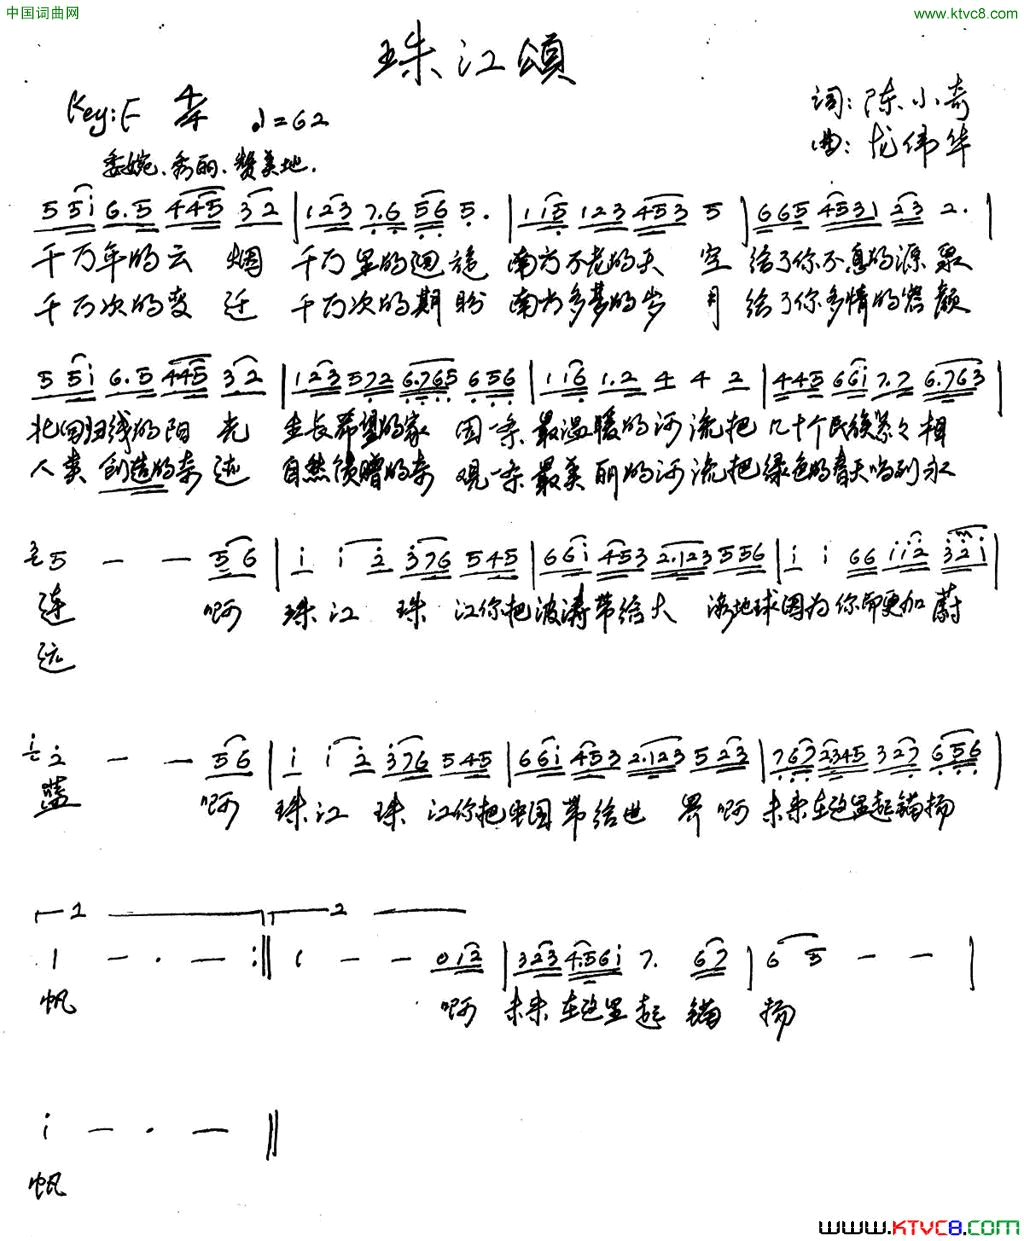 中国词曲网
www.ktvc8.com
珠江頌
Key:F 4/4 ♩=62
词:陈小奇
曲:龙伟华
委婉、秀丽、赞美地.
5 5i 6.5 445 32 | 123 7.6 56 5. | 115 123 453 5 | 665 4531 23 2. |
千万年的云 烟 千万里的迴旋 南方不老的天 空 给了你不息的源泉
千万次的变 迁 千万次的期盼 南方多梦的岁 月 给了你多情的容颜
5 5i 6.5 445 32 | 123 572 6.765 656 | 116 1.2 4 4 2 | 445 66i 7.7 6.763 |
北回归线的阳 光 生长希望的家 园一条最温暖的河流把几十个民族紧々相
人类创造的奇迹 自然馈赠的奇 观一条最美丽的河流把绿色的春天唱到永
3 5 — — 56 | i i 2 376 545 | 66i 453 2.123 556 | i i 66 ii2 32i |
连 啊 珠江 珠 江你把波涛带给大 海地球因为你而更加蔚
远
i 2 — — 56 | i i 2 376 545 | 66i 453 2.123 523 | 767 2345 327 656 |
蓝 啊 珠江 珠 江你把中国带给世 界啊未来在这里起锚扬
1 2
1 — . — :‖ 1 — — 012 | 323 4.56i 7. 67 | 6 5 — — |
帆 啊 未来在这里起 锚 扬
i — . — ‖
帆
www.KTVC8.com